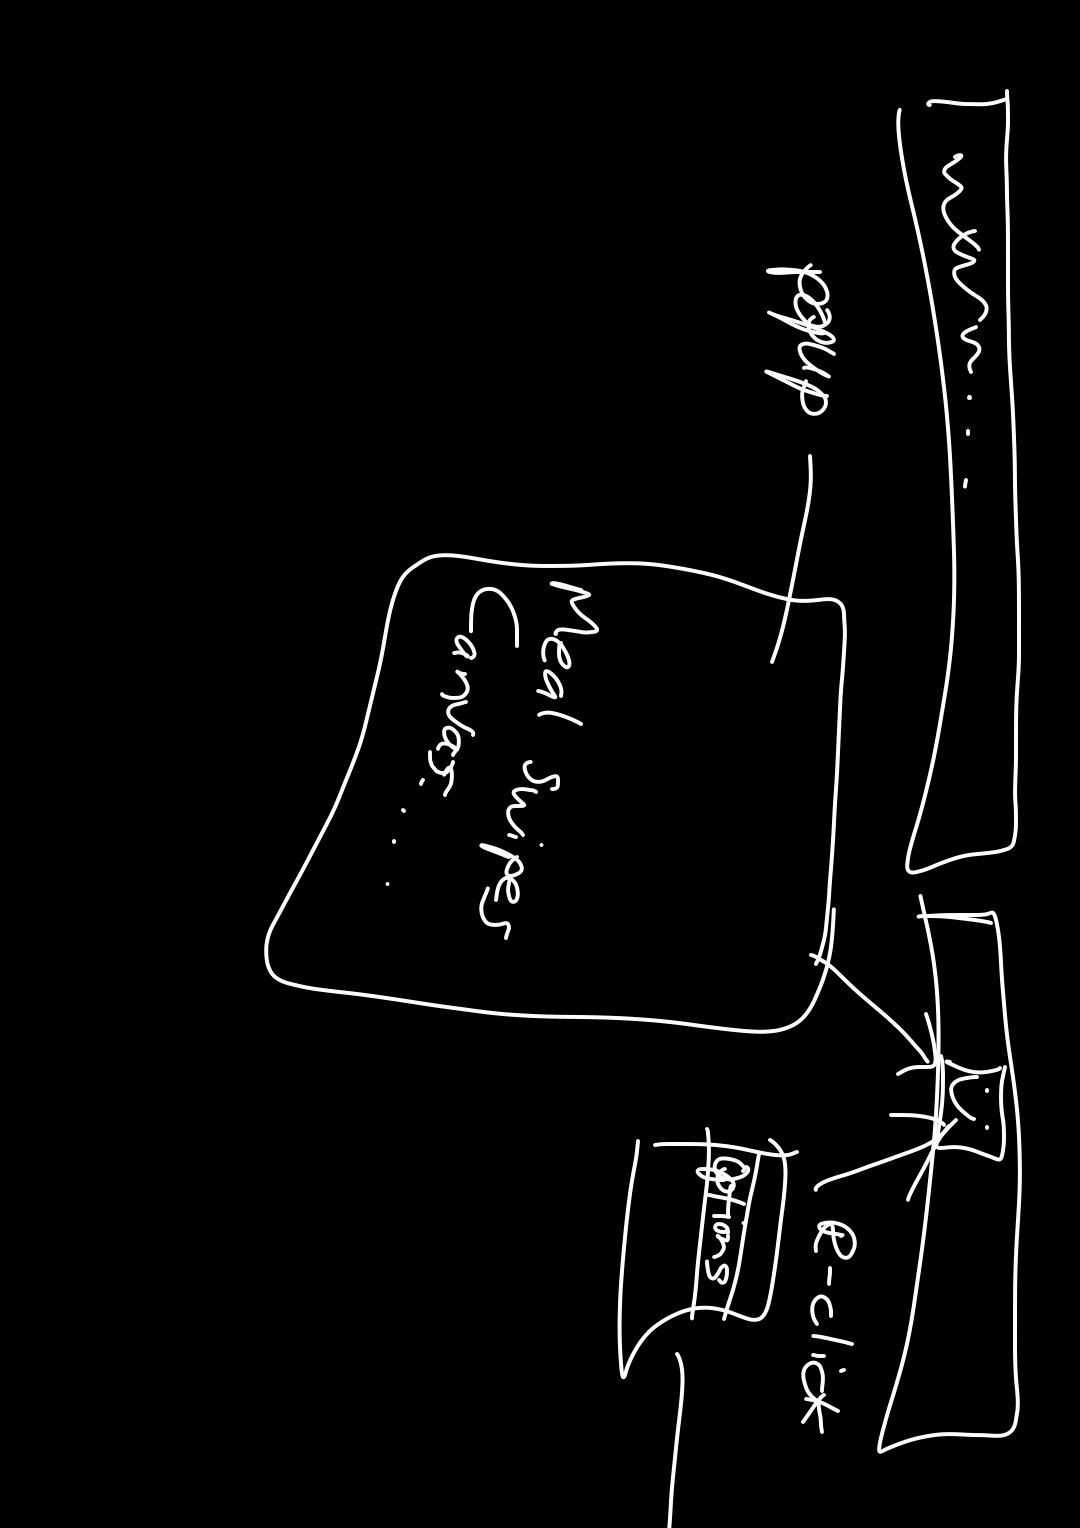 popup
Meal Swipes
Canvas...
R-click
Options